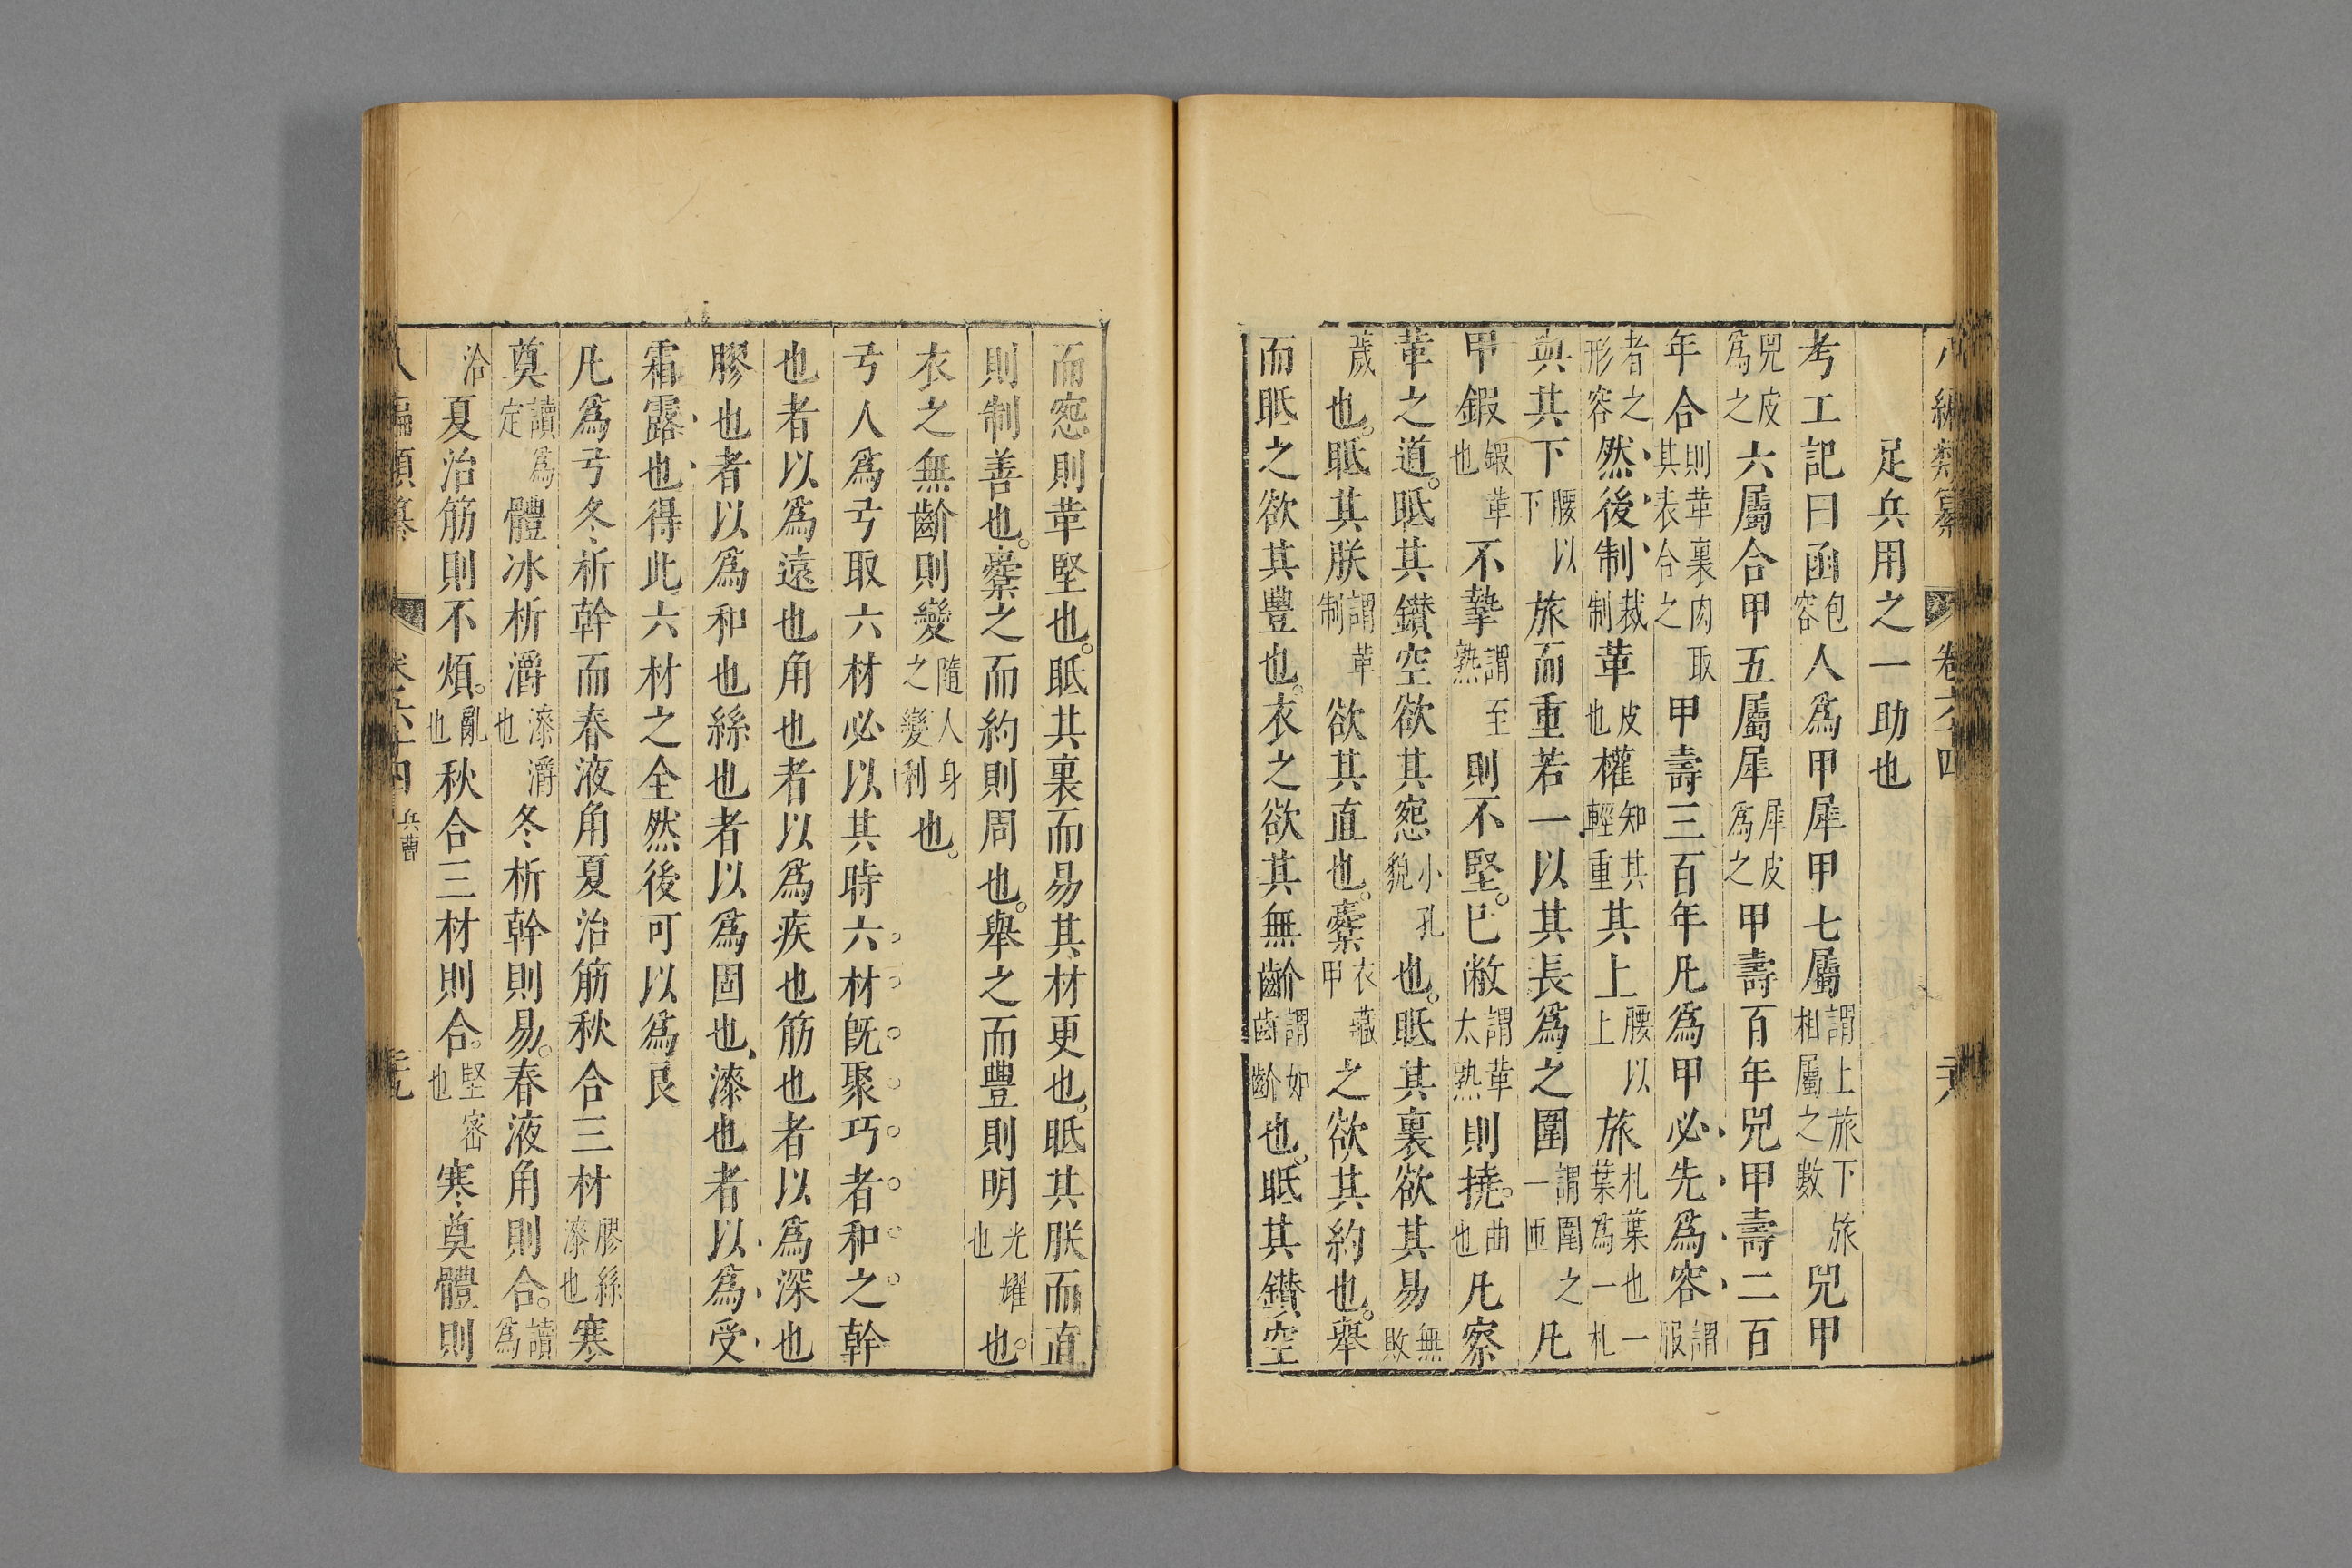 八編類纂 卷六十四 二十八
足兵用之一助也
考工記曰函包容人爲甲犀甲七屬謂上旅下旅相屬之數兕甲
兕皮爲之六屬合甲五屬犀犀皮爲之甲壽百年兕甲壽二百
年合則革裏肉取其表合之甲壽三百年凡爲甲必先爲容謂服
者之形容然後制裁制革皮也權知其輕重其上腰以上旅札葉也一葉爲一札
與其下腰以下旅而重若一以其長爲之圍謂圍之一匝凡
甲鍜鍜革也不摯謂至熟則不堅巳敝謂革太熟則撓曲也凡察
革之道眡其鑚空欲其窓小孔貌也眡其裏欲其易無敗
薉也眡其朕謂革制欲其直也櫜衣藏甲之欲其約也舉
而眡之欲其豐也衣之欲其無齘謂如齒齘也眡其鑚空
而窓則革堅也眡其裏而易其材更也眡其朕而直
則制善也櫜之而約則周也舉之而豐則明光耀也也
衣之無齘則變隨人身之變利也
弓人爲弓取六材必以其時六材旣聚巧者和之幹
也者以爲遠也角也者以爲疾也筋也者以爲深也
膠也者以爲和也絲也者以爲固也漆也者以爲受
霜露也得此六材之全然後可以爲良
凡爲弓冬析幹而春液角夏治筋秋合三材膠絲漆也寒
奠讀爲定體冰析灂漆灂也冬析幹則易春液角則合讀爲
洽夏治筋則不煩亂也秋合三材則合堅密也寒奠體則
八編類纂 卷六十四 兵曹 二十九